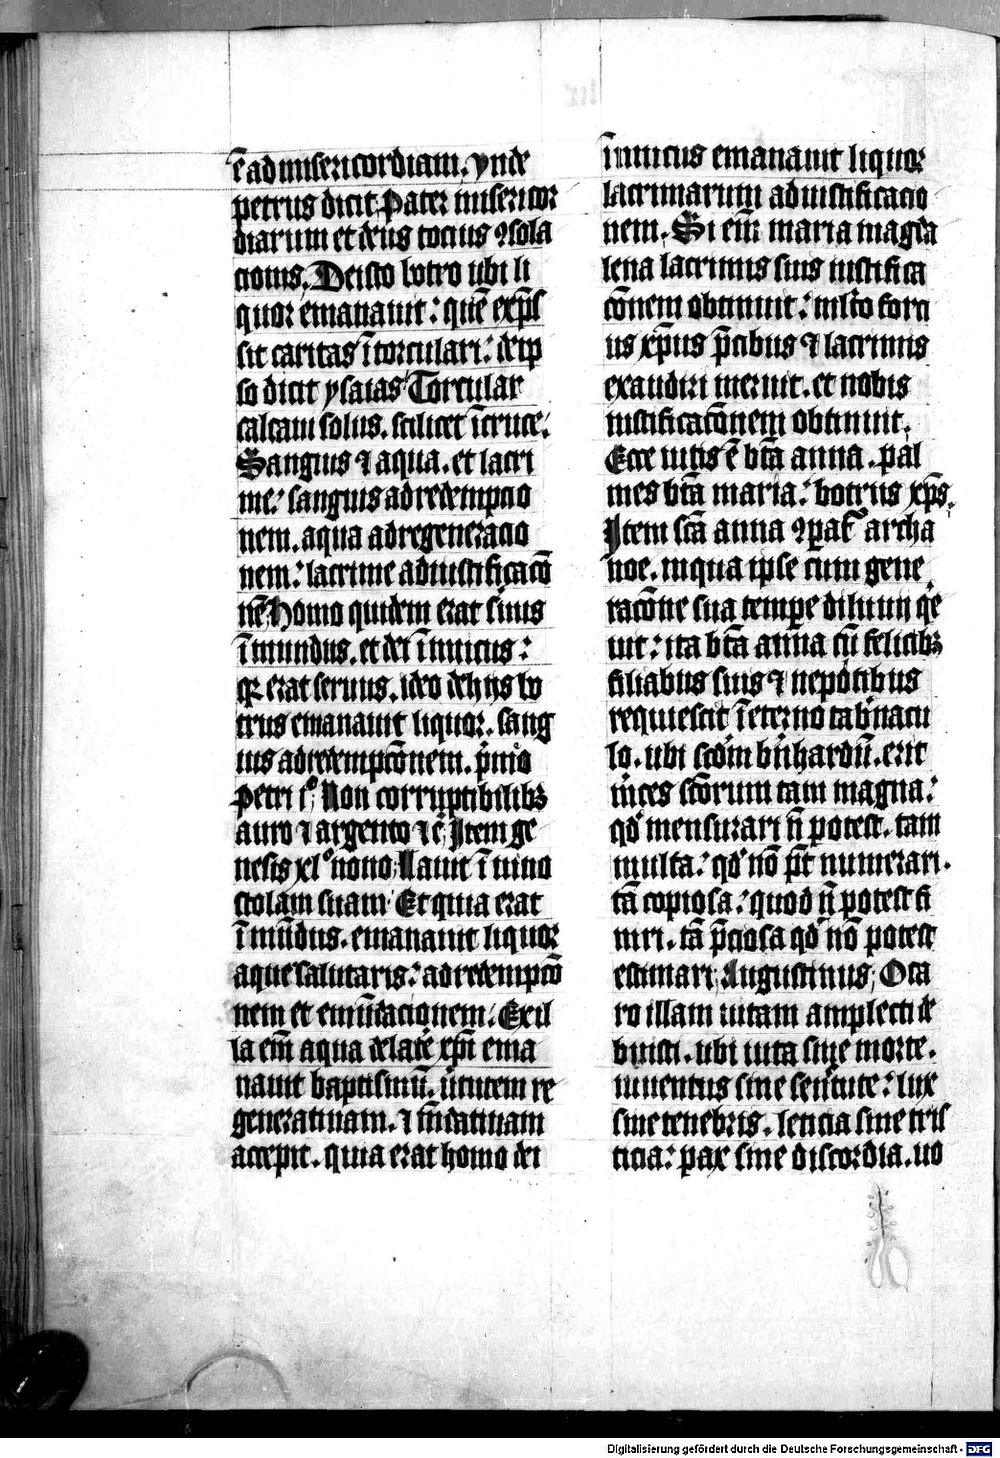 ē ad misericordiam. vnde
petrus dicit Pater misericor
diarum et deus tocius ꝯsola
cionis. De isto botro ubi li
quor emanauit: quē exp̄s
sit caritas ī torculari: de ip
so dicit ysaias Torcular
calcaui solus. scilicet ī cruce:
Sanguis ⁊ aqua. et lacri
me: sanguis ad redempcio
nem. aqua ad regeneracio
nem: lacrime ad iustificacō
nē Homo quidem erat sinus
ī mundus. et dei ī imicus:
qꝛ erat seruus. ideo de hijs bo
trus emanauit liquor. sang
uis ad redempcōnem. p̄mo
petri i° Non corruptibilibꝫ
auro ⁊ argento ⁊c̄ Item ge
nesis xl° nono Lauit ī uino
stolam suam Et quia erat
ī mūdus. emanauit liquor
aque salutaris: ad redempcō
nem et emūdacionem. Ex il
la em̄ aqua de latē xp̄i ema
nauit baptismū. uirtutem re
generatiuam. ⁊ mūdatiuam
accepit. quia erat homo dei
īimicus emanauit liquor
lacrimarum ad iustificacio
nem. Si em̄ maria magda
lena lacrimis suis iustifica
cōnem obtinuit: mlto forci
us xp̄us p̄cibus ⁊ lacrimis
exaudiri meruit. et nobis
iustificacōnem obtinuit.
Ecce uitis ē bt̄a anna. pal
mes bt̄a maria: botrus xp̄s.
Item sc̄a anna ꝯpat̄ archa
noe. in qua ipse cum gene
racōne sua tempe diluuij qͥe
uit: ita bt̄a anna cū felicibꝫ
filiabus suis ⁊ nepotibus
requiescit ī eterno tab̄nacu
lo. ubi scd̄m b̄nhardū. erit
m̄ces sc̄orum tam magna:
qd̓ mensurari n̄ potest. tam
multa: qd̓ nō p̄t numerari.
tā copiosa: quod n̄ potest fi
niri. tā p̄ciosa qd̓ nō potest
estimari Augustinus O ca
ro illam uitam amplecti de
buisti. ubi uita sine morte.
iuuentus sine sen̄tute: lux
sine tenebris. leticia sine tris
ticia: pax sine discordia. uo
Digitalisierung gefördert durch die Deutsche Forschungsgemeinschaft - DFG